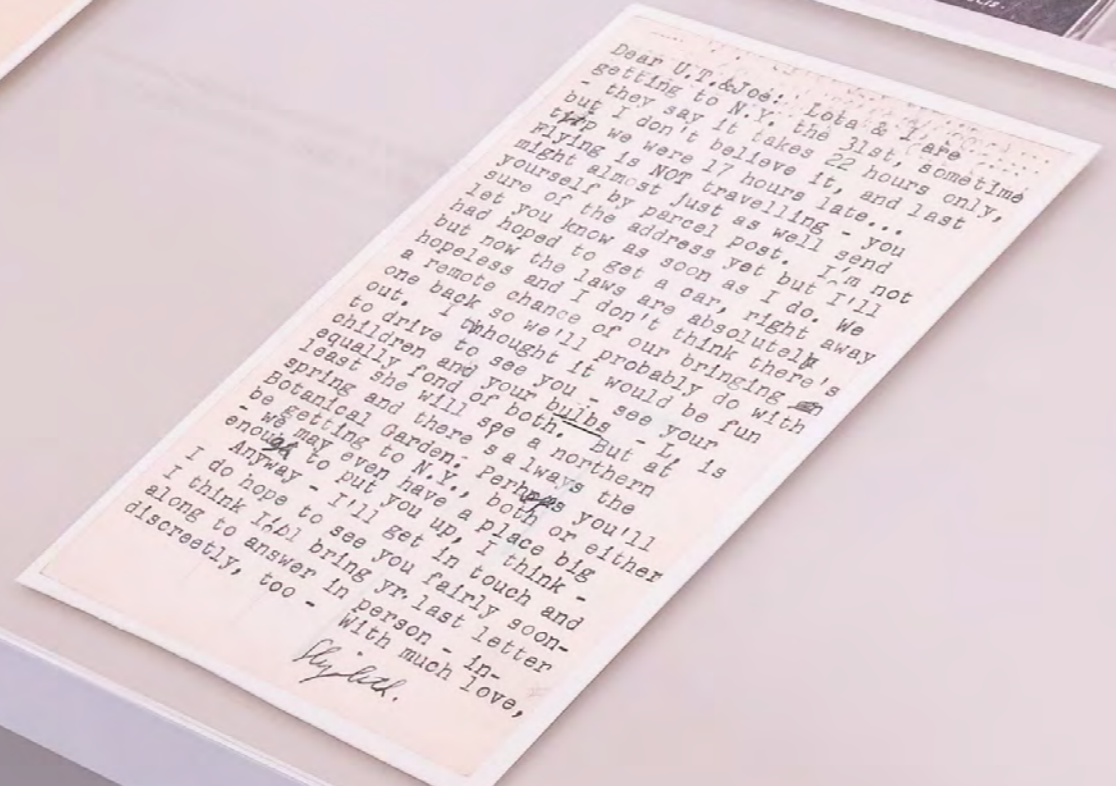 Dear U.T.&Joe: Lota & I are
getting to N.Y. the 31st, sometime
- they say it takes 22 hours only,
but I don't believe it, and last
trip we were 17 hours late...
Flying is NOT travelling - you
might almost just as well send
yourself by parcel post. I'm not
sure of the address yet but I'll
let you know as soon as I do. We
had hoped to get a car, right away
but now the laws are absolutely
hopeless and I don't think there's
a remote chance of our bringing
one back so we'll probably do with
out. I thought it would be fun
to drive to see you - see your
children and your bulbs - L. is
equally fond of both. But at
least she will see a northern
spring and there's always the
Botanical Garden. Perhaps you'll
be getting to N.Y., both or either
- we may even have a place big
enough to put you up, I think -
Anyway - I'll get in touch and
I do hope to see you fairly soon-
I think I'll bring yr. last letter
along to answer in person - in-
discreetly, too -
With much love,
Elizabeth.